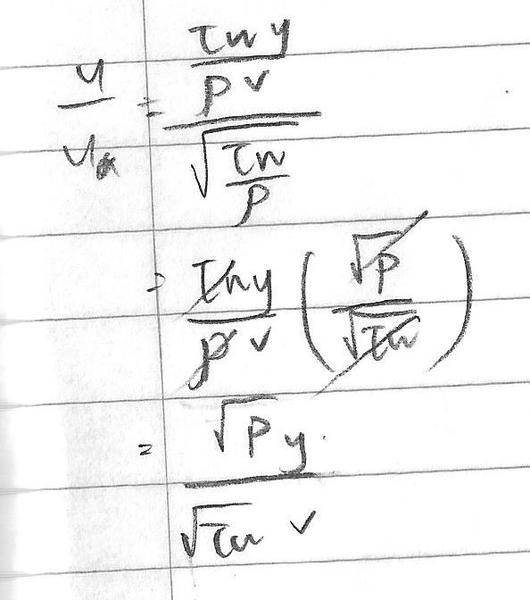 u/u* = (τw y / ρ ν) / √(τw / ρ)
= τw y / ρ ν (√ρ / √τw)
= √ρ y / √τw ν